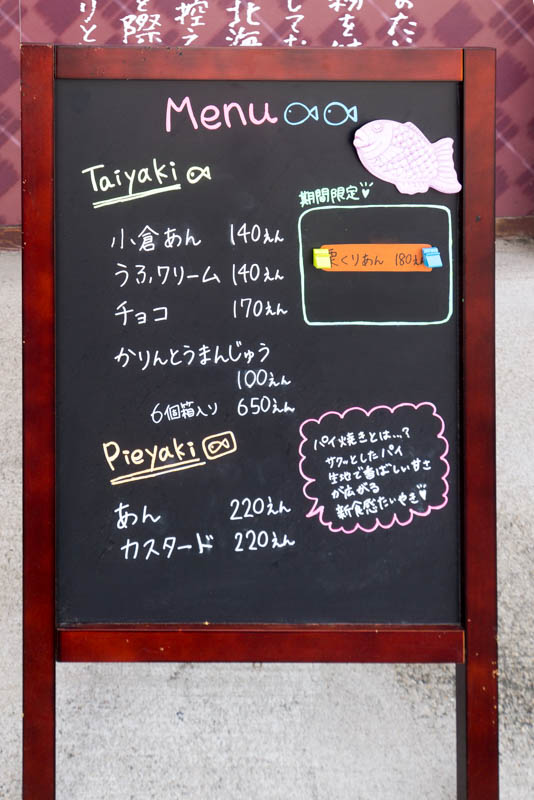 りと
を際
控え
北海
してお
粉をは
のたい
Menu
Taiyaki
期間限定
小倉あん 140えん
うふクリーム 140えん
チョコ 170えん
かりんとうまんじゅう
100えん
6個箱入り 650えん
栗くりあん 180えん
Pieyaki
あん 220えん
カスタード 220えん
パイ焼きとは…?
サクッとしたパイ
生地で香ばしい甘さ
が広がる
新食感たいやき♥